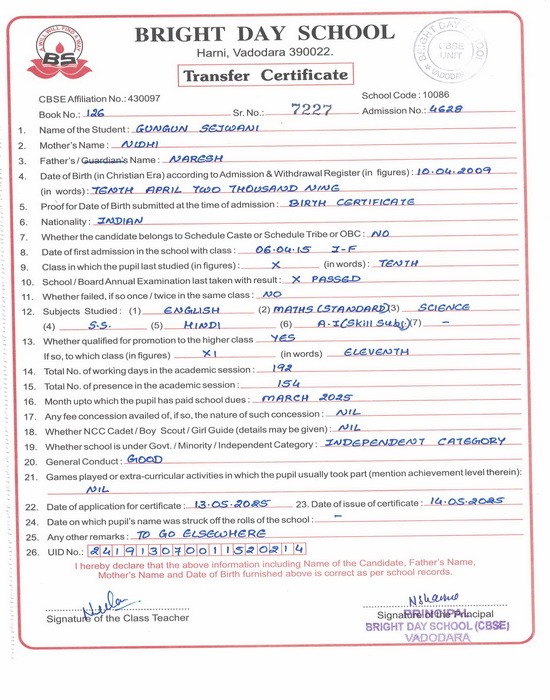 A WILL WILL FIND A WAY
BS
BRIGHT DAY SCHOOL
Harni, Vadodara 390022.
BRIGHT DAY SCHOOL
CBSE
UNIT
VADODARA
Transfer Certificate
CBSE Affiliation No.: 430097 School Code : 10086
Book No.: 126 Sr. No.: 7227 Admission No.: 4628
1. Name of the Student : GUNGUN SEJWANI
2. Mother's Name : NIDHI
3. Father's / Guardian's Name : NARESH
4. Date of Birth (in Christian Era) according to Admission & Withdrawal Register (in figures) : 10.04.2009
(in words) : TENTH APRIL TWO THOUSAND NINE
5. Proof for Date of Birth submitted at the time of admission : BIRTH CERTIFICATE
6. Nationality : INDIAN
7. Whether the candidate belongs to Schedule Caste or Schedule Tribe or OBC : NO
8. Date of first admission in the school with class : 06.04.15 I-F
9. Class in which the pupil last studied (in figures) : X (in words) : TENTH
10. School / Board Annual Examination last taken with result : X PASSED
11. Whether failed, if so once / twice in the same class : NO
12. Subjects Studied : (1) ENGLISH (2) MATHS (STANDARD) (3) SCIENCE
(4) S.S. (5) HINDI (6) A.I (Skill Subj.) (7) –
13. Whether qualified for promotion to the higher class YES
If so, to which class (in figures) XI (in words) ELEVENTH
14. Total No. of working days in the academic session : 192
15. Total No. of presence in the academic session : 154
16. Month upto which the pupil has paid school dues : MARCH 2025
17. Any fee concession availed of, if so, the nature of such concession : NIL
18. Whether NCC Cadet / Boy Scout / Girl Guide (details may be given) : NIL
19. Whether school is under Govt. / Minority / Independent Category : INDEPENDENT CATEGORY
20. General Conduct : GOOD
21. Games played or extra-curricular activities in which the pupil usually took part (mention achievement level therein):
NIL
22. Date of application for certificate : 13.05.2025 23. Date of issue of certificate : 14.05.2025
24. Date on which pupil's name was struck off the rolls of the school : –
25. Any other remarks : TO GO ELSEWHERE
26. UID No.: 241913070011520214
I hereby declare that the above information including Name of the Candidate, Father's Name,
Mother's Name and Date of Birth furnished above is correct as per school records.
Signature of the Class Teacher
NSharma
Signature of the Principal
PRINCIPAL
BRIGHT DAY SCHOOL (CBSE)
VADODARA